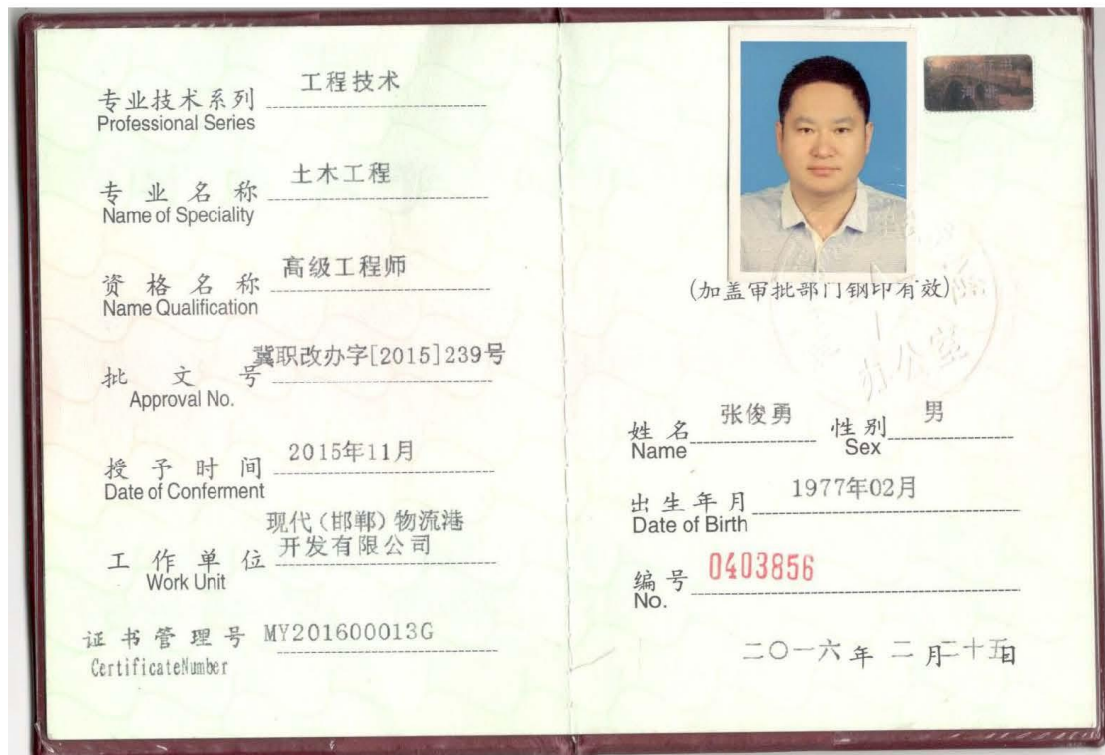 专业技术系列 工程技术
Professional Series
专业名称 土木工程
Name of Speciality
资格名称 高级工程师
Name Qualification
批文号 冀职改办字[2015]239号
Approval No.
授予时间 2015年11月
Date of Conferment
现代(邯郸)物流港
工作单位 开发有限公司
Work Unit
证书管理号 MY201600013G
CertificateNumber
河北
(加盖审批部门钢印有效)
办公室
姓名 张俊勇 性别 男
Name Sex
出生年月 1977年02月
Date of Birth
编号 0403856
No.
二〇一六年 二月二十五日